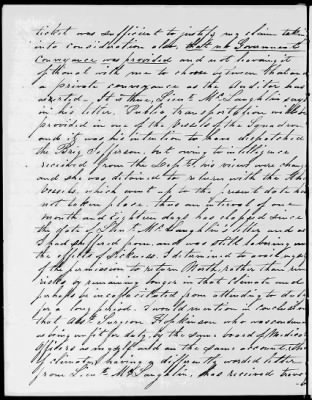 ticket was sufficient to justify my claim taking
into consideration also, that no Government
Conveyance was provided and not leaving it
optional with me to choose between that and
a private conveyance as the Auditor has
asserted. It is true, Lieut McLaughlin says
in his letter, Public transportation will be
provided in one of the vessels of the Squadron
and it was his intention to have dispatched
the Brig Jefferson, but owing to intelligence
received from the Dept his views were changed
and she was detained to return with the other
vessels, which went up to the present date had
not taken place, thus an interval of one
month and eighteen days has elapsed since
the date of Lieut McLaughlin's letter and as
I had suffered from, and was still laboring under
the effects of sickness, I determined to avail myself
of the permission to return North, rather than run
risks, by remaining longer in that climate and
perhaps be incapacitated from attending to duty
for a long period. I would mention in conclusion
that Asst Surgeon Hopkinson who was condemned
as being unfit for duty, by the same board of Medical
Officers as myself and on the same account, that
of climate, having a differently worded letter
from Lieut McLaughlin, has received travel